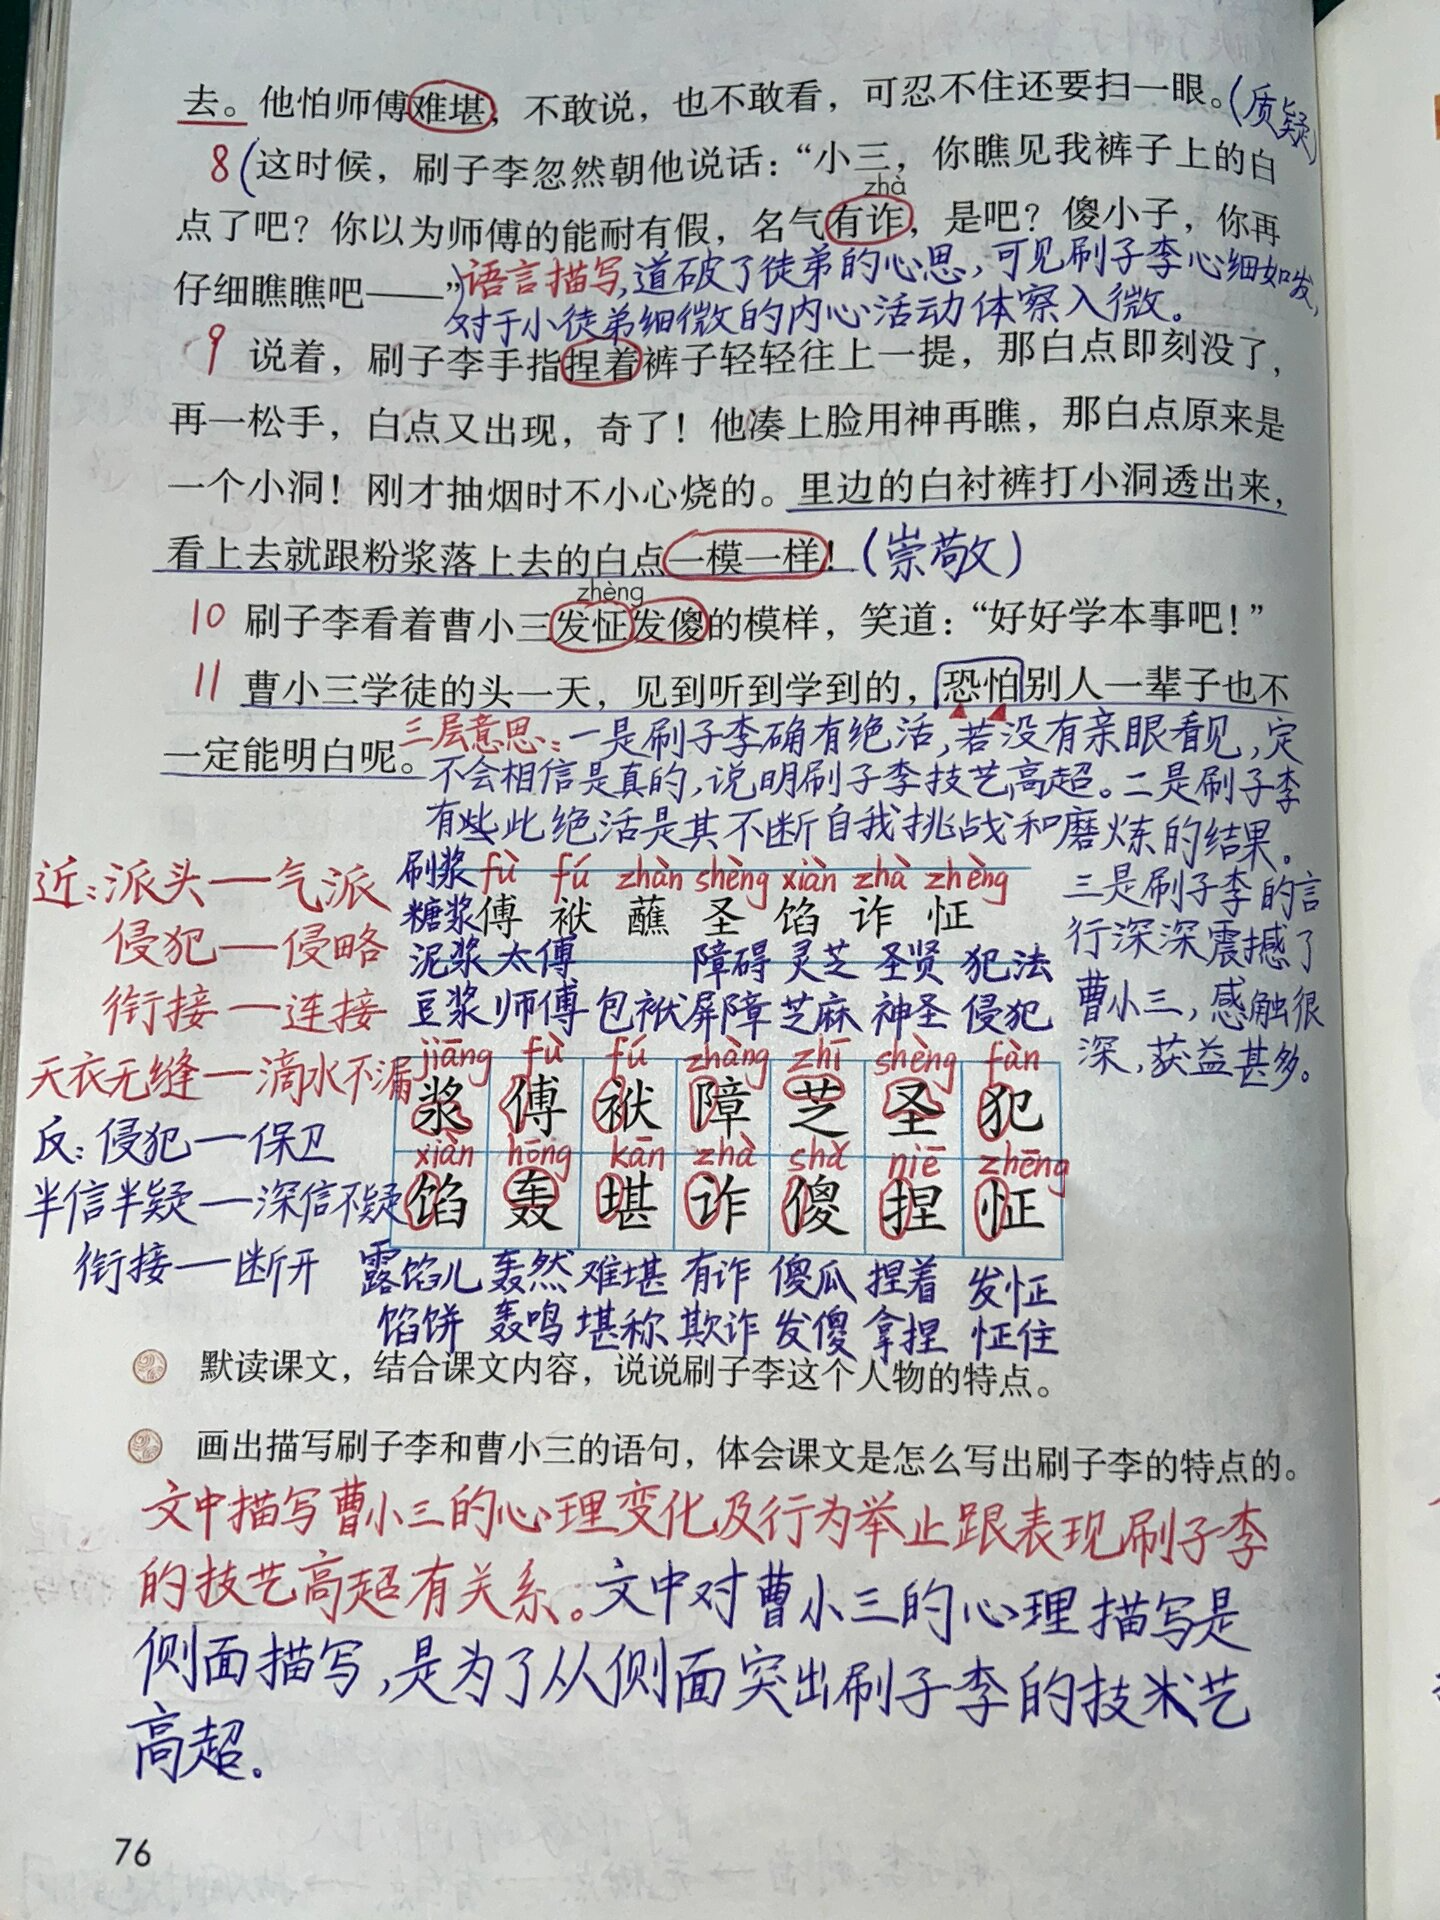 去。他怕师傅难堪，不敢说，也不敢看，可忍不住还要扫一眼。(质疑)
8 (这时候，刷子李忽然朝他说话：“小三，你瞧见我裤子上的白
zhà
点了吧？你以为师傅的能耐有假，名气有诈，是吧？傻小子，你再
仔细瞧瞧吧——”)语言描写,道破了徒弟的心思,可见刷子李心细如发,
对于小徒弟细微的内心活动体察入微。
9 说着，刷子李手指捏着裤子轻轻往上一提，那白点即刻没了，
再一松手，白点又出现，奇了！他凑上脸用神再瞧，那白点原来是
一个小洞！刚才抽烟时不小心烧的。里边的白衬裤打小洞透出来，
看上去就跟粉浆落上去的白点一模一样！(崇敬)
zhèng
10 刷子李看着曹小三发怔发傻的模样，笑道：“好好学本事吧！”
11 曹小三学徒的头一天，见到听到学到的，恐怕别人一辈子也不
一定能明白呢。三层意思:一是刷子李确有绝活,若没有亲眼看见,定
不会相信是真的,说明刷子李技艺高超。二是刷子李
有此绝活是其不断自我挑战和磨炼的结果。
三是刷子李的言
行深深震撼了
曹小三,感触很
深,获益甚多。
近:派头—气派
侵犯—侵略
衔接—连接
天衣无缝—滴水不漏
反:侵犯—保卫
半信半疑—深信不疑
衔接—断开
刷浆 fù fú zhàn shèng xiàn zhà zhèng
糖浆 傅 袱 蘸 圣 馅 诈 怔
泥浆 太傅 障碍 灵芝 圣贤 犯法
豆浆 师傅 包袱 屏障 芝麻 神圣 侵犯
jiāng fù fú zhàng zhī shèng fàn
浆 傅 袱 障 芝 圣 犯
xiàn hōng kān zhà shǎ niē zhēng
馅 轰 堪 诈 傻 捏 怔
露馅儿 轰然 难堪 有诈 傻瓜 捏着 发怔
馅饼 轰鸣 堪称 欺诈 发傻 拿捏 怔住
默读课文，结合课文内容，说说刷子李这个人物的特点。
画出描写刷子李和曹小三的语句，体会课文是怎么写出刷子李的特点的。
文中描写曹小三的心理变化及行为举止跟表现刷子李
的技艺高超有关系。文中对曹小三的心理描写是
侧面描写,是为了从侧面突出刷子李的技术艺
高超.
76